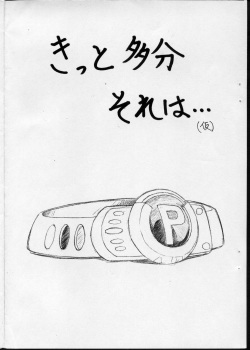 きっと多分
それは…
(仮)
P